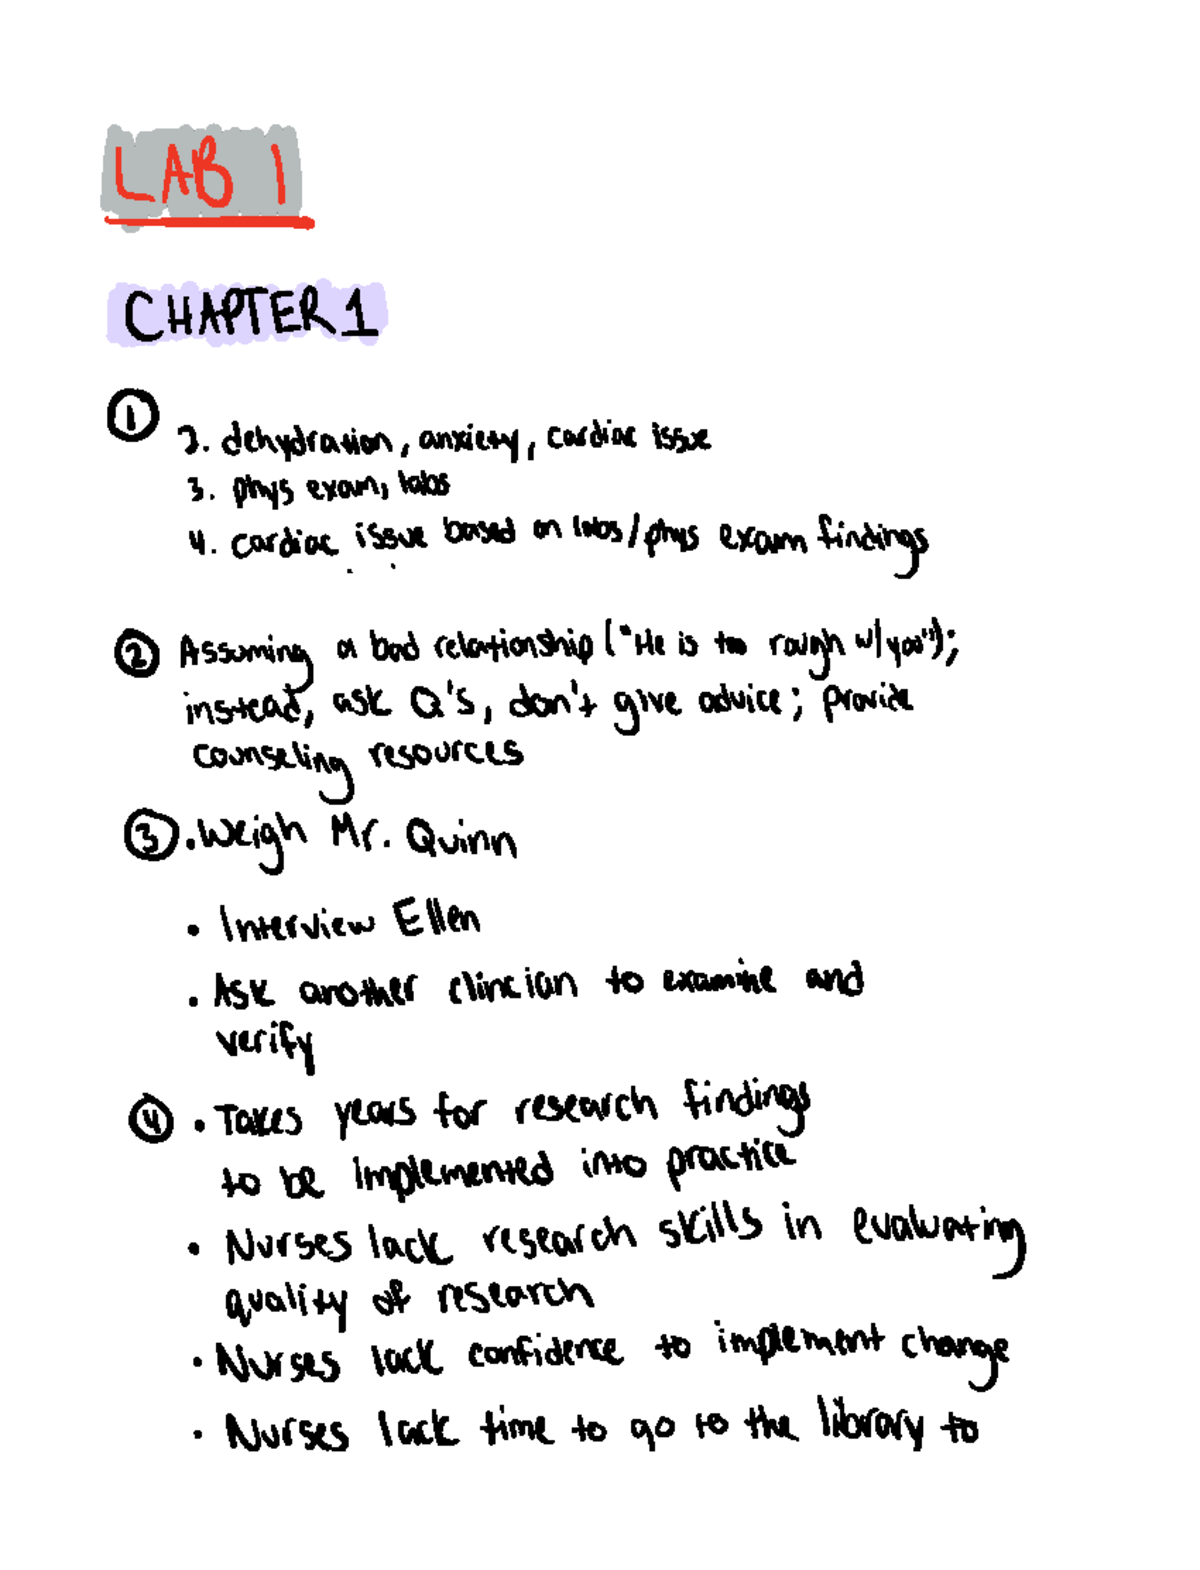 LAB 1
CHAPTER 1
① 2. dehydration, anxiety, cardiac issue
3. phys exam, labs
4. cardiac issue based on labs/phys exam findings
② Assuming a bad relationship ("He is too rough w/you");
instead, ask Q's, don't give advice; provide
counseling resources
③ • Weigh Mr. Quinn
• Interview Ellen
• Ask another clincian to examine and
verify
④ • Takes years for research findings
to be implemented into practice
• Nurses lack research skills in evaluating
quality of research
• Nurses lack confidence to implement change
• Nurses lack time to go to the library to